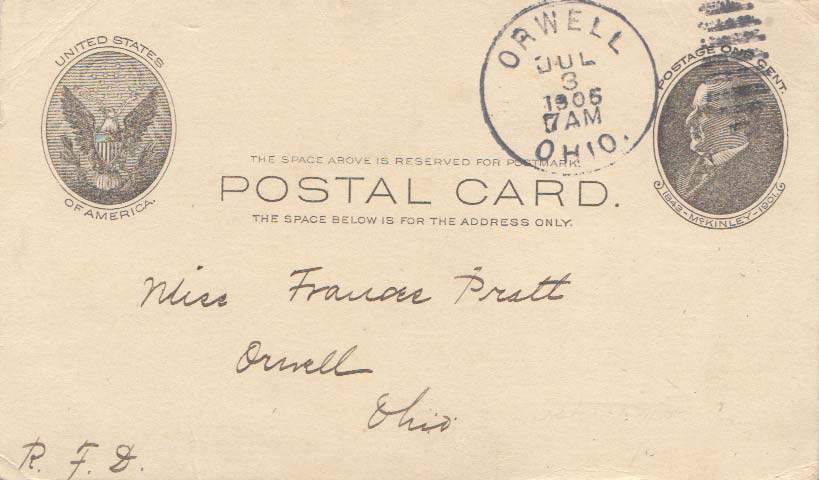 UNITED STATES
OF AMERICA.
ORWELL
JUL
3
1905
7 AM
OHIO.
POSTAGE ONE CENT.
1843-McKINLEY-1901.
THE SPACE ABOVE IS RESERVED FOR POSTMARK.
POSTAL CARD.
THE SPACE BELOW IS FOR THE ADDRESS ONLY.
Miss Frances Pratt
Orwell
Ohio
R. F. D.